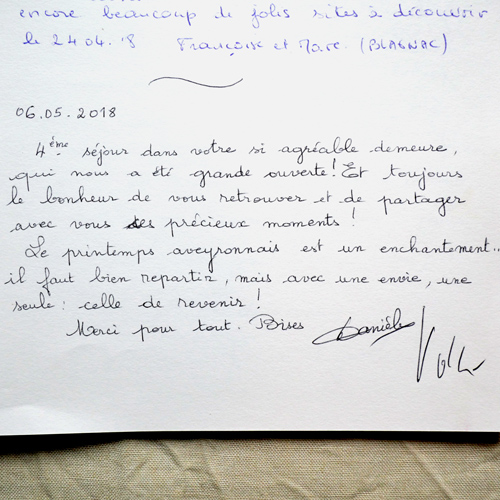 encore beaucoup de jolis sites à découvrir
le 24 04. 18 Françoise et Marc. (BLAGNAC)
06.05.2018
4ème séjour dans votre si agréable demeure,
qui nous a été grande ouverte! Et toujours
le bonheur de vous retrouver et de partager
avec vous des précieux moments!
Le printemps aveyronnais est un enchantement..
il faut bien repartir, mais avec une envie, une
seule: celle de revenir!
Merci pour tout. Bises Danièle